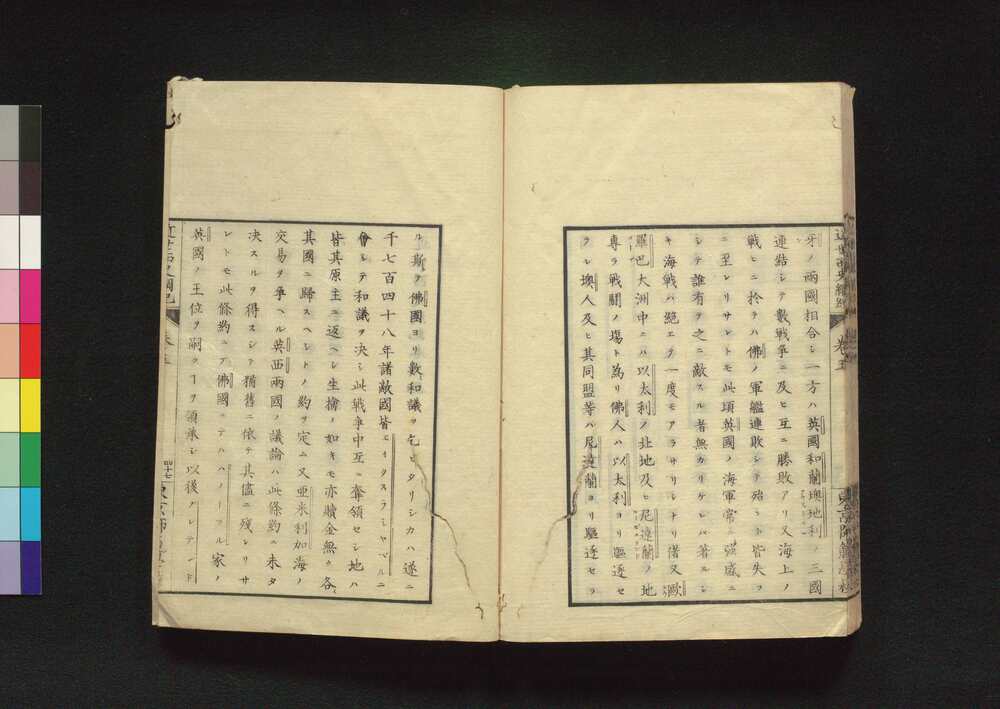 牙ノ兩國相合シ一方ハ英國和蘭墺地利ノ三國
連結シテ數戰爭ニ及ヒ互ニ勝敗アリ又海上ノ
戰ヒニ於テハ佛ノ軍艦連敗シテ殆ント皆失フ
ニ至レリサレトモ此頃英國ノ海軍常ニ强盛ニ
シテ誰有テ之ニ敵スル者無カリケレハ著ルシ
キ海戰ハ絕エテ一度モアラサリシトソ偖又歐
羅巴大洲中ニハ以太利ノ北地及ヒ尼達蘭ノ地
專ラ戰鬪ノ塲ト爲リ佛人ハ以太利ヨリ驅逐セ
ラレ墺人及ヒ其同盟等ハ尼達蘭ヨリ驅逐セラ
ル斯テ佛國ヨリ數和議ヲ乞ヒタリシカハ遂ニ
千七百四十八年諸敵國皆エイクスラシヤペルニ
會シテ和議ヲ決シ此戰爭中互ニ奪領セシ地ハ
皆其原主ニ返ヘシ生擒ノ如キモ亦贖金無ク各
其國ニ歸スヘシトノ約ヲ定ム又亞米利加海ノ
交易ヲ爭ヘル英西兩國ノ議論ハ此條約ニ未タ
決スルヲ得スシテ猶舊ニ依テ其儘ニ殘レリサ
レトモ此條約ニテ佛國ニテハハノーフル家ノ
英國ノ王位ヲ嗣クヿヲ領承シ以後プレテンド
近世西史綱紀
卷五
四十七